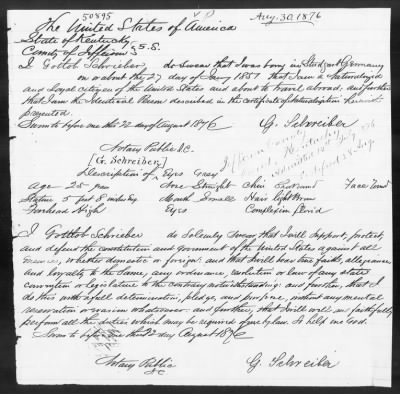 50895
Aug. 30, 1876
The United States of America
State of Kentucky
County of Jefferson } S.S.
I Gottlob Schreiber do swear that I was born in Germany
on or about the 27 day of 1851 that I am a naturalized
and loyal citizen of the United States and about to travel abroad, and further
that I am the identical Person described in the certificate of naturalization herewith
presented.
Sworn to before me this 22 day of August 1876
G. Schreiber
Notary Public
[G. Schreiber]
Description of Eyes Gray
Age 25 year Nose Straight Chin Face
Stature 5 feet 8 inches Mouth Small Hair light Brown
Forehead High Eyes Complexion florid
I Gottlob Schrieber do Solemly Swear that I will support, protect,
and defend the constitution and government of the United States against all
enemies, whether domestic or foreign: and that I will bear true faith, allegiance
and loyalty to the same, any ordinance, resolution or law of any state
convention or legislature to the contrary notwithstanding: and further, that I
do this with a full determination, pledge, and purpose, without any mental
reservation or evasion whatsoever: and further, that I will well and faithfully
perform all the duties which may be required of me by law. So help me God.
Sworn to before me this 22 day August 1876
Notary Public
G. Schreiber